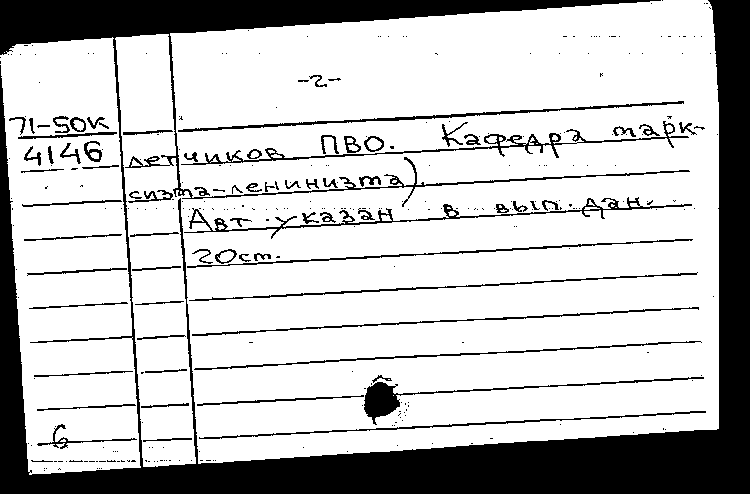 -2-
71-50к
4146 летчиков ПВО. Кафедра марк-
сизма-ленинизма).
Авт. указан в вып. дан.
20см.
6